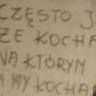 CZĘSTO J
ŻE KOCHA
NA KTÓRYM
A MY KOCHA